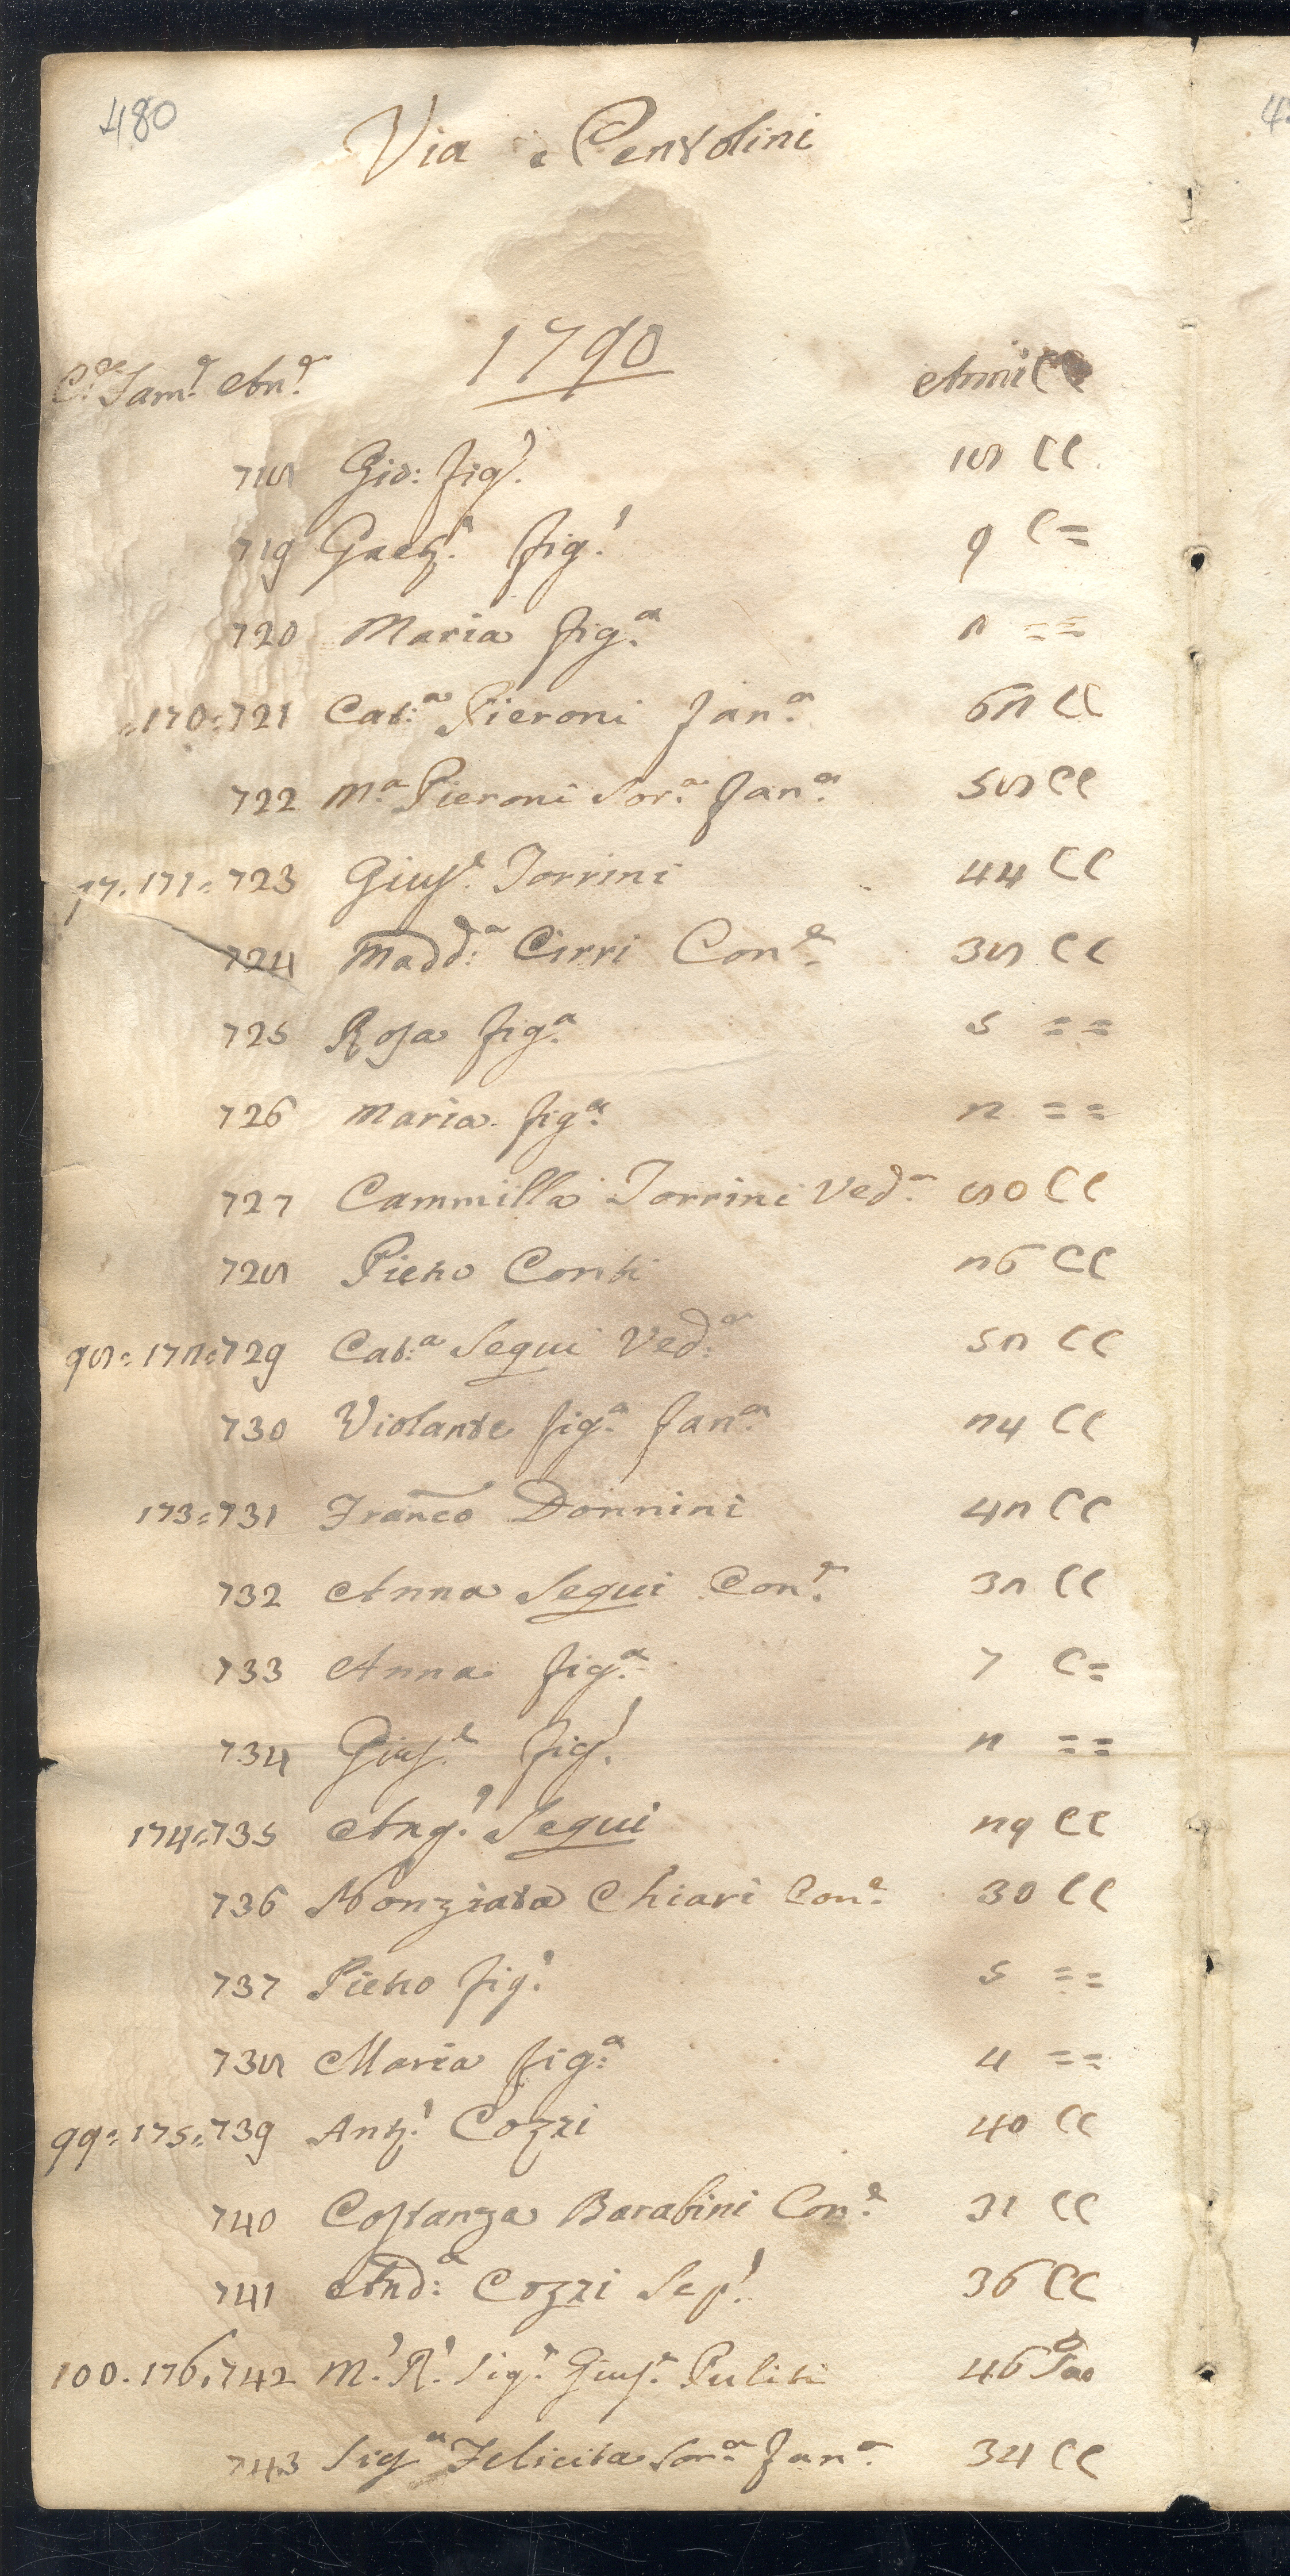 480
Via Pentolini
1790
C.e Fam.e An.e Anni CC
718 Gio: fig.o 18 CC
719 Gaet.o fig.o 9 C=
720 Maria fig.a 2 ==
=170=721 Cat.a Pieroni fan.a 62 CC
722 M.a Pieroni Sor.a fan.a 58 CC
97.171=723 Gius.e Torrini 44 CC
724 Madd.a Cirri Con.e 38 CC
725 Rosa fig.a 5 ==
726 Maria fig.a 2 ==
727 Cammilla Torrini Ved.a 80 CC
728 Pietro Conti 26 CC
98=172=729 Cat.a Segui Ved.a 52 CC
730 Violante fig.a fan.a 24 CC
173=731 Franco Donnini 42 CC
732 Anna Segui Con.e 32 CC
733 Anna fig.a 7 C=
734 Gius.e fig.o 2 ==
174=735 Ang.o Segui 29 CC
736 Nonziata Chiari Con.e 30 CC
737 Pietro fig.o 5 ==
738 Maria fig.a 4 ==
99=175=739 Ant.o Cozzi 40 CC
740 Costanza Barabini Con.e 31 CC
741 And.a Cozzi Sep.o 36 CC
100.176.742 M.o R.o Sig.r Gius.e Puliti 46 Sac
743 Sig.a Felicita Sor.a fan.a 34 CC